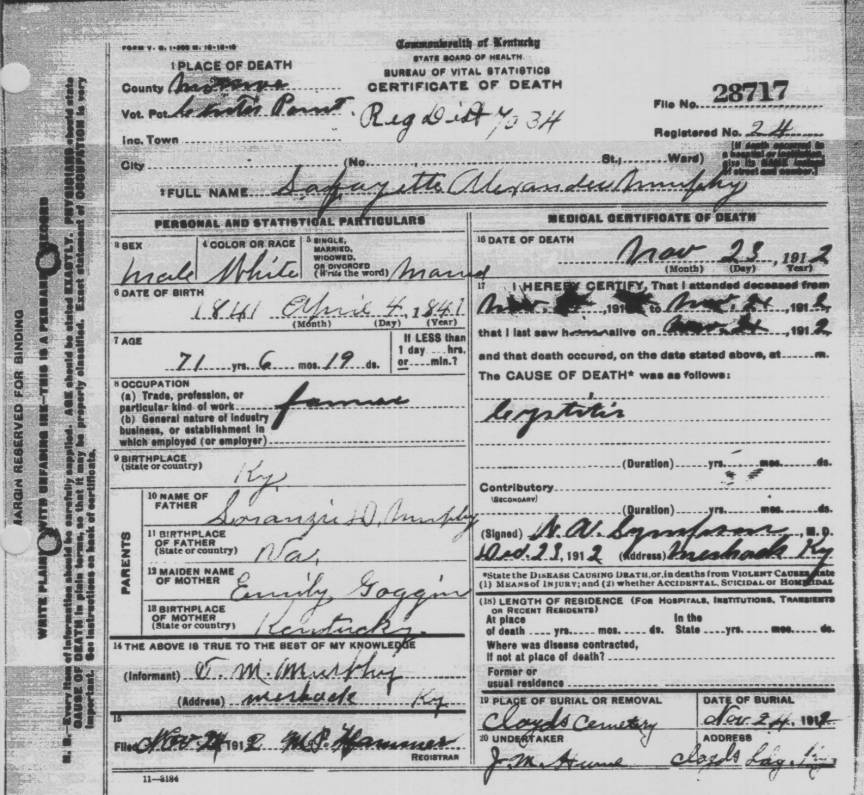 FORM V. S. 1-50M M. 10-10-10
Commonwealth of Kentucky
STATE BOARD OF HEALTH.
BUREAU OF VITAL STATISTICS
CERTIFICATE OF DEATH
1 PLACE OF DEATH
County Monroe
Vot. Pct. Point
Reg Dist 7034
File No. 28717
Inc. Town
Registered No. 24
City (No. , St.; Ward)
[If death occurred in a hospital or institution, give its NAME instead of street and number.]
2 FULL NAME Lafayette Alexander Murphy
PERSONAL AND STATISTICAL PARTICULARS
3 SEX
Male
4 COLOR OR RACE
White
5 SINGLE, MARRIED, WIDOWED, OR DIVORCED (Write the word) Married
6 DATE OF BIRTH
1841 April 4, 1841
(Month) (Day) (Year)
7 AGE
71 yrs. 6 mos. 19 ds.
If LESS than 1 day hrs. or min.?
8 OCCUPATION
(a) Trade, profession, or particular kind of work farmer
(b) General nature of industry business, or establishment in which employed (or employer)
9 BIRTHPLACE
(State or country)
Ky.
PARENTS
10 NAME OF FATHER
D. Murphy
11 BIRTHPLACE OF FATHER
(State or country)
Va.
12 MAIDEN NAME OF MOTHER
Emily Goggin
13 BIRTHPLACE OF MOTHER
(State or country)
Kentucky.
14 THE ABOVE IS TRUE TO THE BEST OF MY KNOWLEDGE
(Informant) T. M. Murphy
(Address) meshack Ky
15
Filed Nov 24 1912 M.P. Hammer
REGISTRAR
11—3184
MEDICAL CERTIFICATE OF DEATH
16 DATE OF DEATH
Nov 23, 1912
(Month) (Day) (Year)
17 I HEREBY CERTIFY, That I attended deceased from
Nov, 191 to Nov, 21, 1912
that I last saw him alive on Nov. 21, 1912
and that death occured, on the date stated above, at m.
The CAUSE OF DEATH* was as follows:
Cystitis
(Duration) yrs. mos. ds.
Contributory
(SECONDARY)
(Duration) yrs. mos. ds.
(Signed) M.D.
Dec. 23, 1912 (Address) Meshack Ky
*State the DISEASE CAUSING DEATH, or, in deaths from VIOLENT CAUSES, state
(1) MEANS OF INJURY; and (2) whether ACCIDENTAL, SUICIDAL OR HOMICIDAL
(18) LENGTH OF RESIDENCE (FOR HOSPITALS, INSTITUTIONS, TRANSIENTS
OR RECENT RESIDENTS)
At place of death yrs. mos. ds. In the State yrs. mos. ds.
Where was disease contracted,
If not at place of death?
Former or
usual residence
19 PLACE OF BURIAL OR REMOVAL
Cloyds Cemetery
DATE OF BURIAL
Nov. 24, 1912
20 UNDERTAKER
J M Hume
ADDRESS
Cloyds Ldg. Ky
MARGIN RESERVED FOR BINDING
WRITE PLAINLY WITH UNFADING INK—THIS IS A PERMANENT RECORD
N. B.—Every item of information should be carefully supplied. AGE should be stated EXACTLY. PHYSICIANS should state
CAUSE OF DEATH in plain terms, so that it may be properly classified. Exact statement of OCCUPATION is very
important. See instructions on back of certificate.